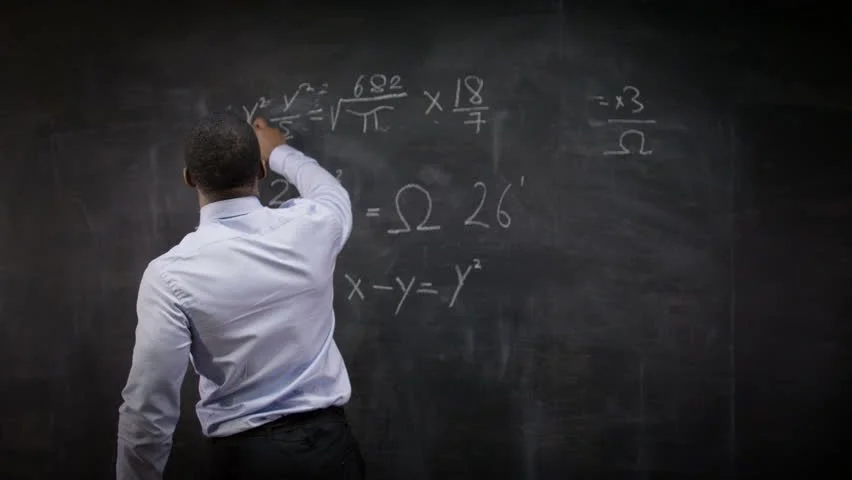 y² y²²/5 = √682/π × 18/7 = ×3/Ω
2 ² = Ω 26'
x - y = y²